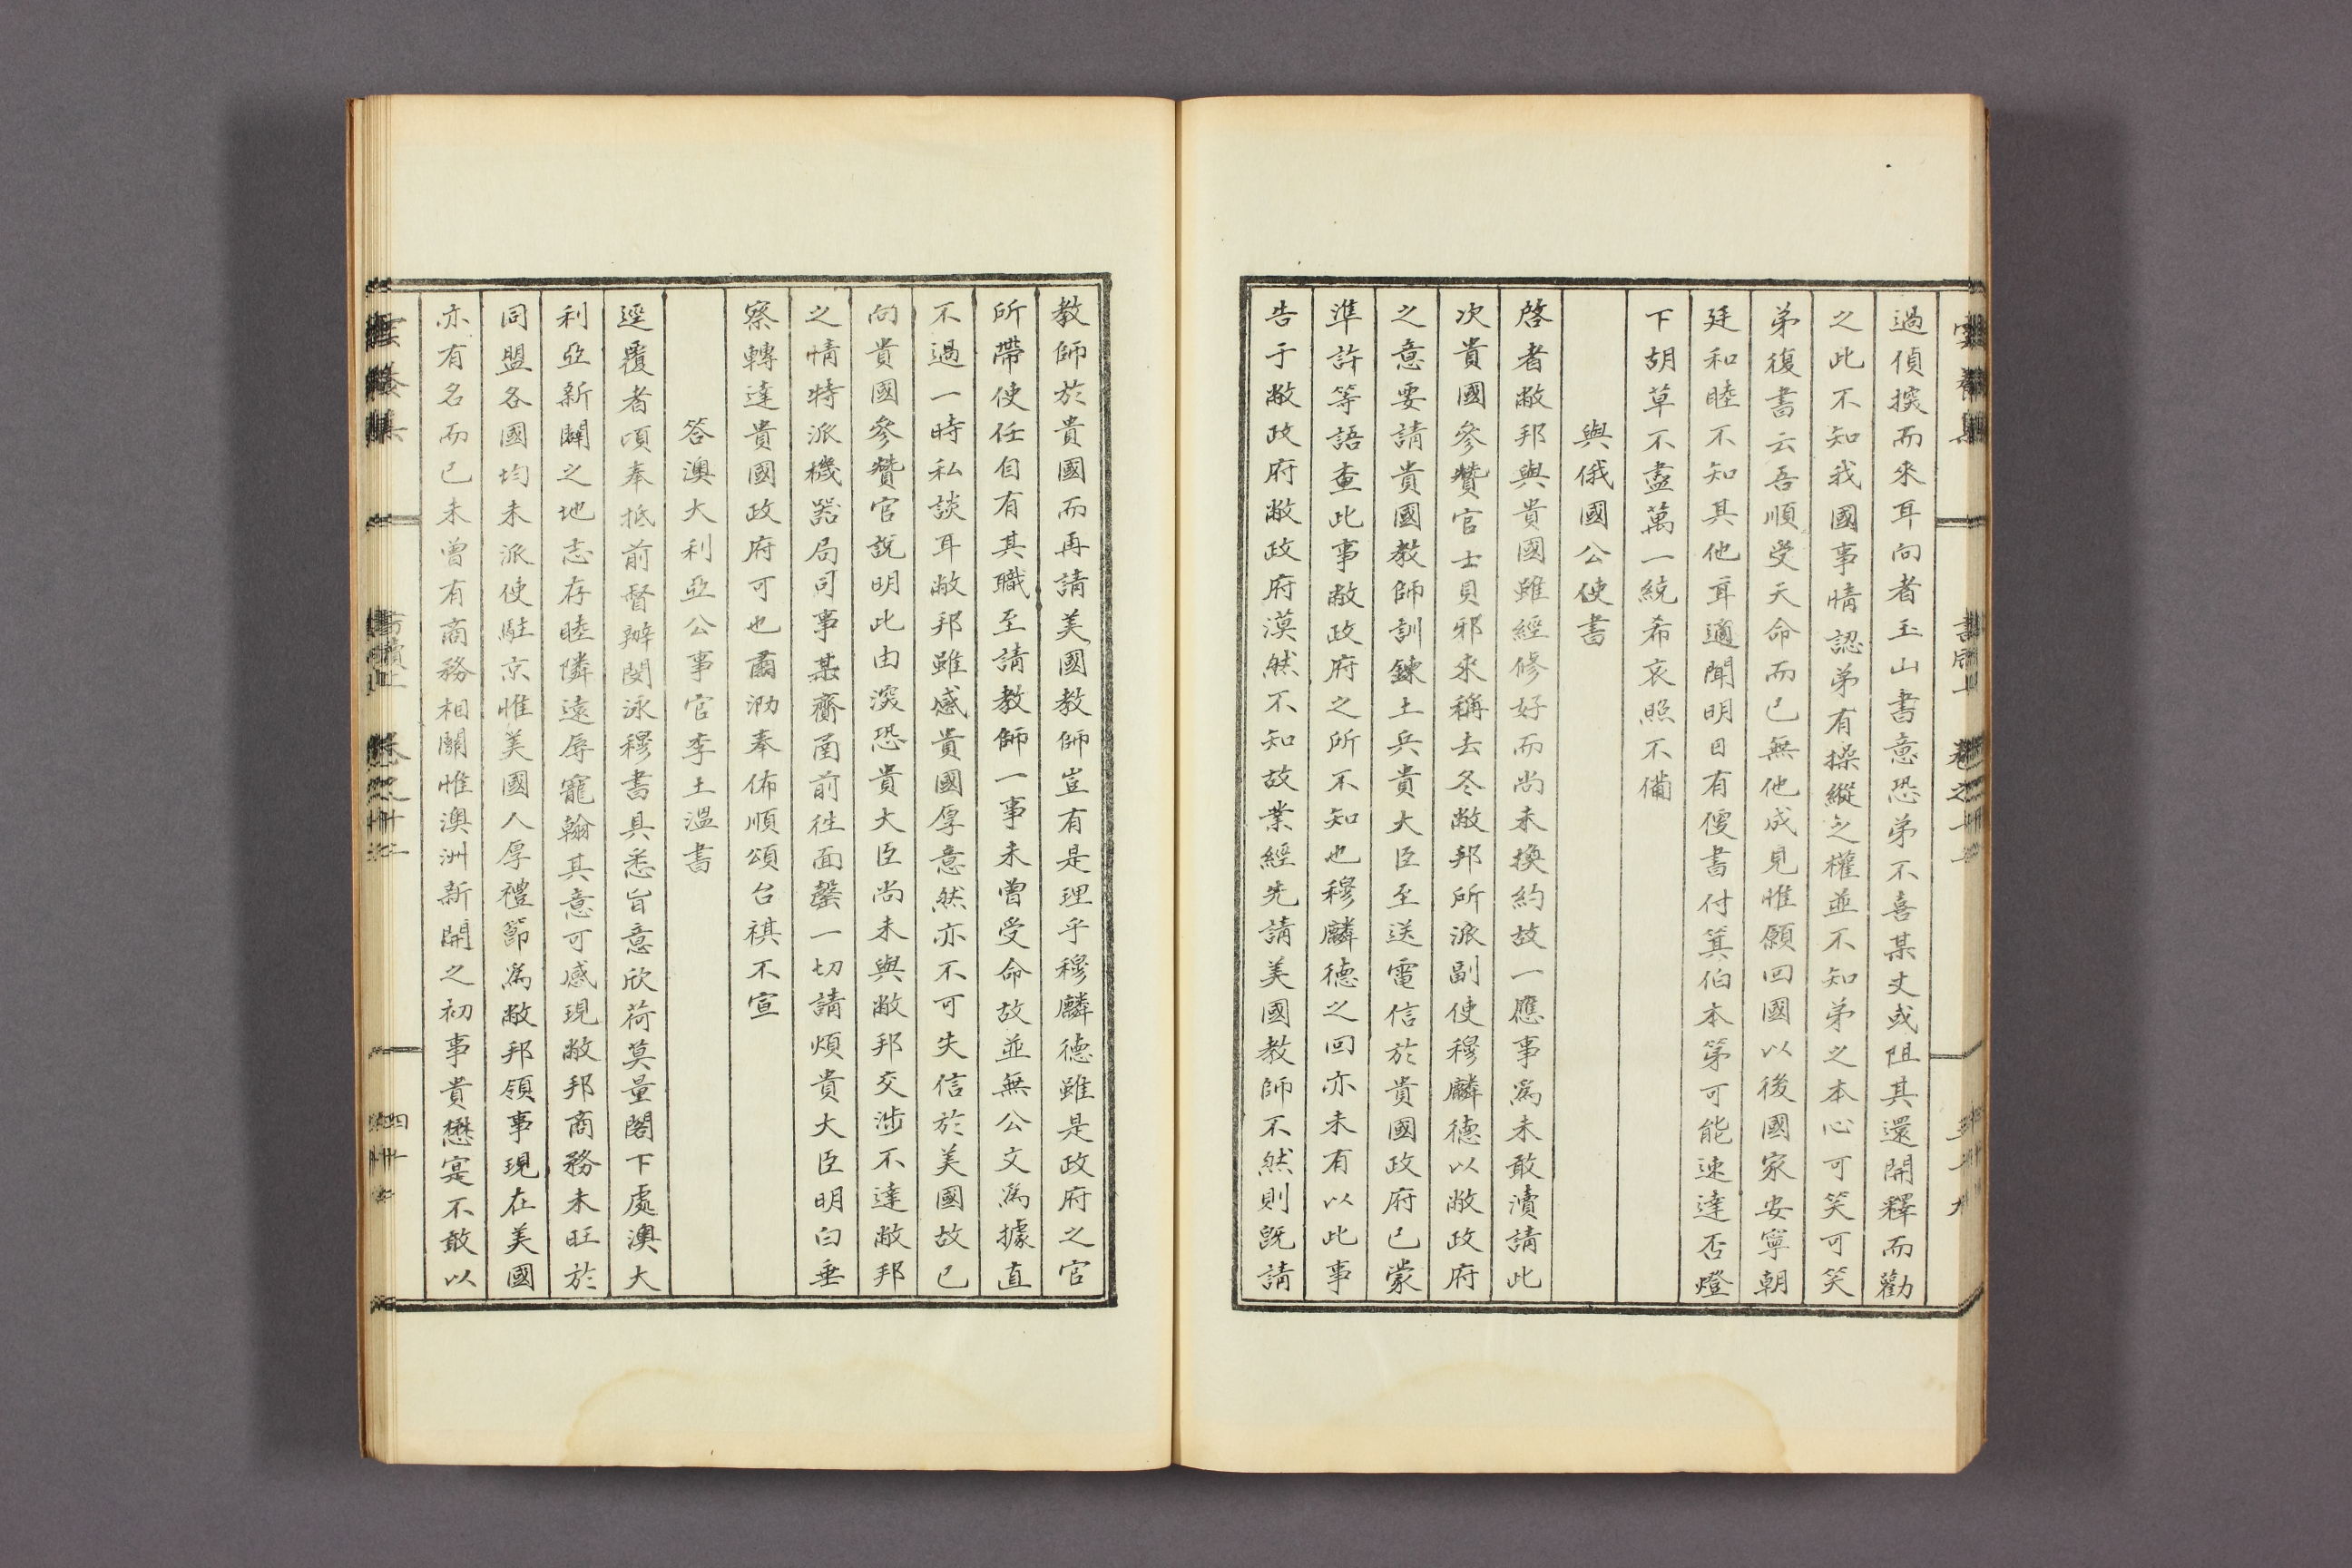 過偵探而來耳向者玉山書意恐弟不喜某丈或阻其還開釋而勸
之此不知我國事情認弟有操縱之權並不知弟之本心可笑可笑
弟復書云吾順受天命而已無他成見惟願回國以後國家安寧朝
廷和睦不知其他耳適聞明日有便書付箕伯本第可能速達否燈
下胡草不盡萬一統希哀照不備
與俄國公使書
啓者敝邦與貴國雖經修好而尚未換約故一應事爲未敢瀆請此
次貴國參贊官士貝邪來稱去冬敝邦所派副使穆麟德以敝政府
之意要請貴國教師訓鍊土兵貴大臣至送電信於貴國政府已蒙
準許等語查此事敝政府之所不知也穆麟德之回亦未有以此事
告于敝政府敝政府漠然不知故業經先請美國教師不然則旣請
教師於貴國而再請美國教師豈有是理乎穆麟德雖是政府之官
所帶使任自有其職至請教師一事未曾受命故並無公文爲據直
不過一時私談耳敝邦雖感貴國厚意然亦不可失信於美國故已
向貴國參贊官說明此由深恐貴大臣尚未與敝邦交涉不達敝邦
之情特派機器局司事某齎函前往面罄一切請煩貴大臣明白垂
察轉達貴國政府可也肅泐奉佈順頌台祺不宣
答澳大利亞公事官李土溫書
逕覆者頃奉抵前督辦閔泳穆書具悉旨意欣荷莫量閣下處澳大
利亞新闢之地志存睦隣遠辱寵翰其意可感現敝邦商務未旺於
同盟各國均未派使駐京惟美國人厚禮節爲敝邦領事現在美國
亦有名而已未曾有商務相關惟澳洲新開之初事貴懋寔不敢以